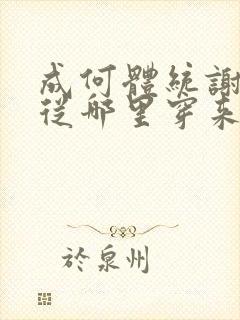 成何體統謝
從那里穿来
於泉州